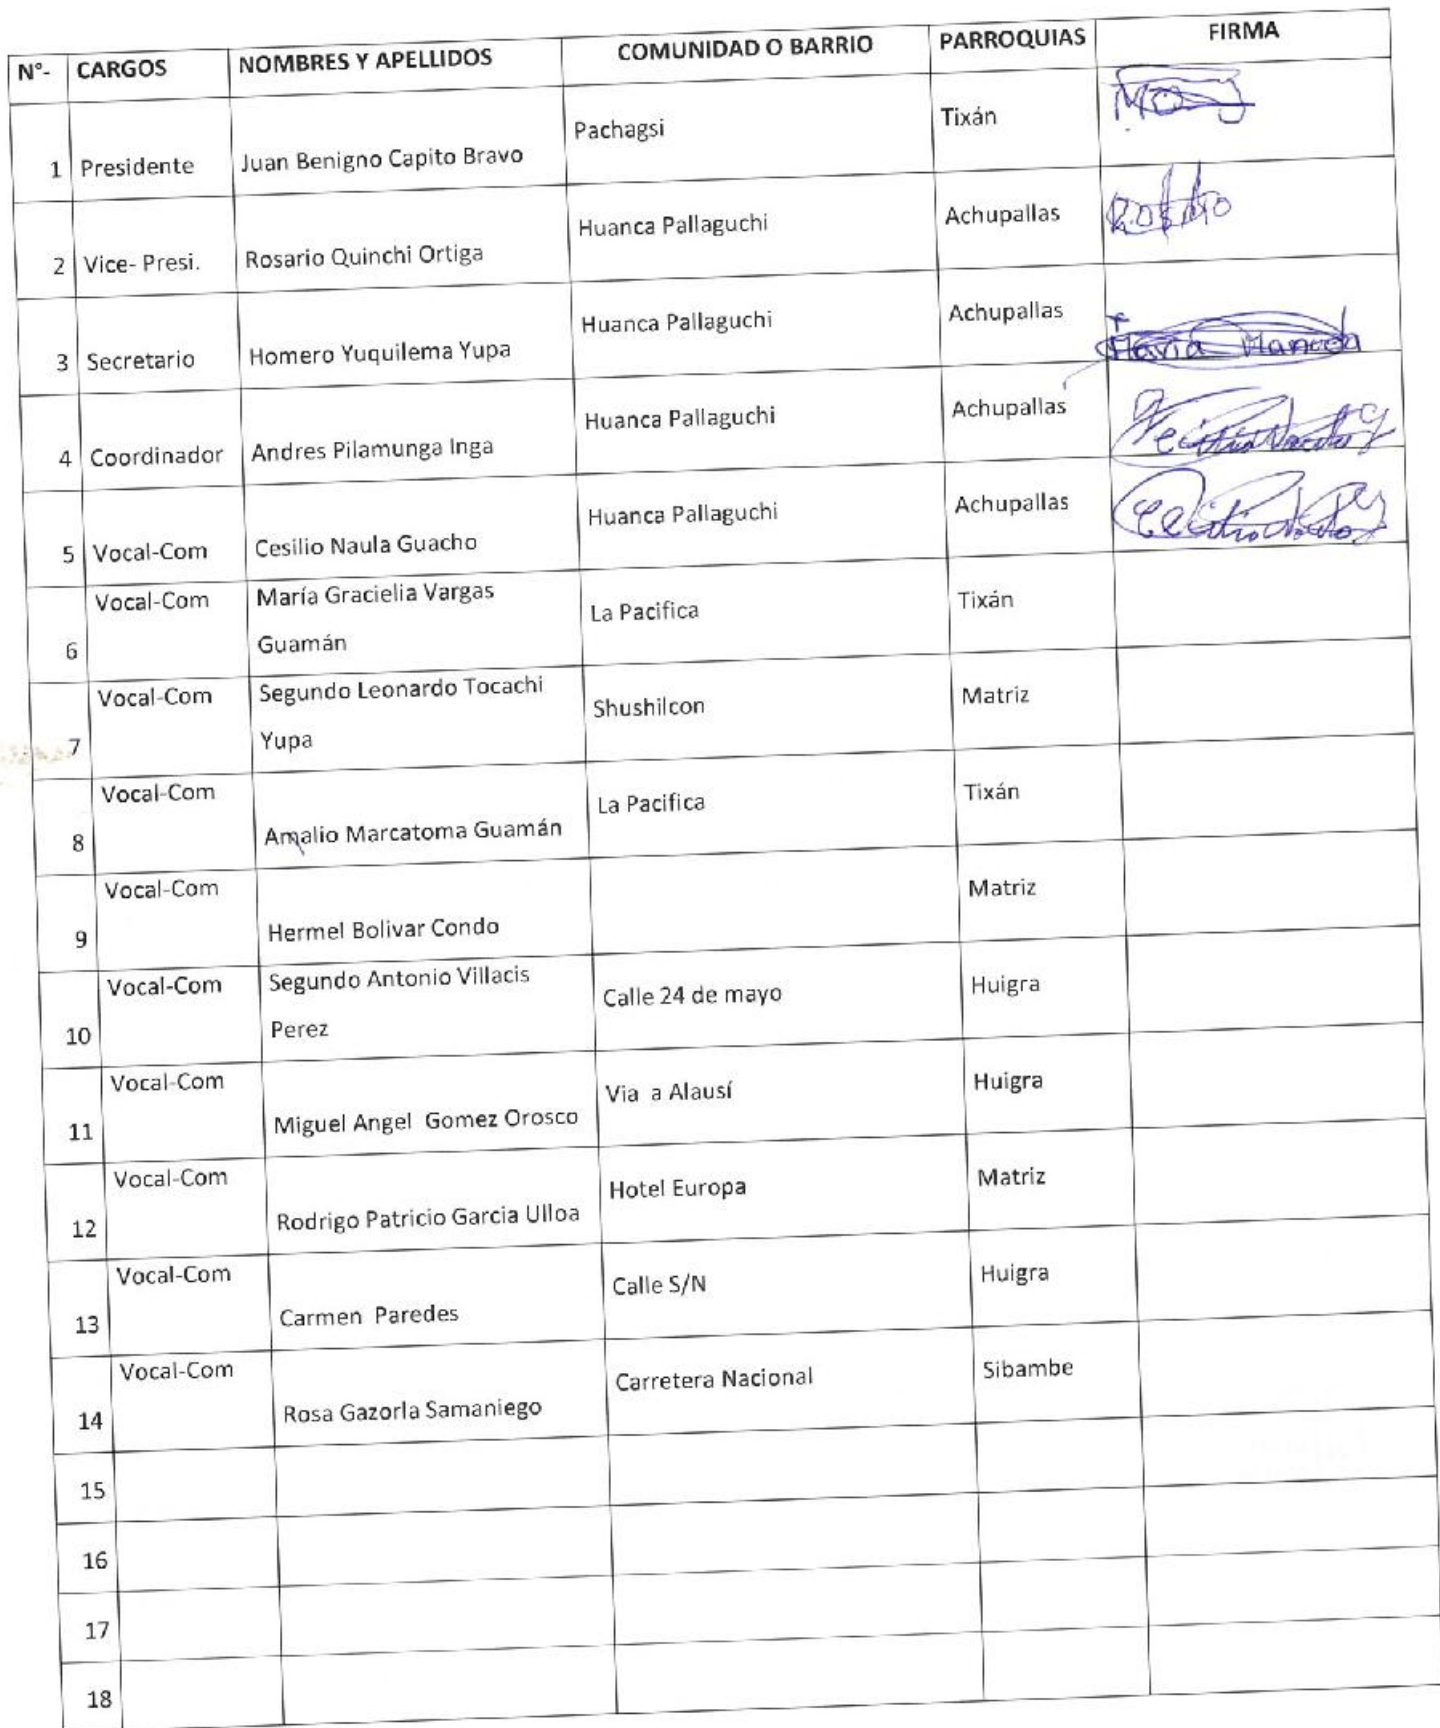 N°- CARGOS NOMBRES Y APELLIDOS COMUNIDAD O BARRIO PARROQUIAS FIRMA
1 Presidente Juan Benigno Capito Bravo Pachagsi Tixán
2 Vice- Presi. Rosario Quinchi Ortiga Huanca Pallaguchi Achupallas
3 Secretario Homero Yuquilema Yupa Huanca Pallaguchi Achupallas
4 Coordinador Andres Pilamunga Inga Huanca Pallaguchi Achupallas
5 Vocal-Com Cesilio Naula Guacho Huanca Pallaguchi Achupallas
6 Vocal-Com María Gracielia Vargas
Guamán La Pacifica Tixán
7 Vocal-Com Segundo Leonardo Tocachi
Yupa Shushilcon Matriz
8 Vocal-Com Amalio Marcatoma Guamán La Pacifica Tixán
9 Vocal-Com Hermel Bolivar Condo Matriz
10 Vocal-Com Segundo Antonio Villacis
Perez Calle 24 de mayo Huigra
11 Vocal-Com Miguel Angel Gomez Orosco Via a Alausí Huigra
12 Vocal-Com Rodrigo Patricio Garcia Ulloa Hotel Europa Matriz
13 Vocal-Com Carmen Paredes Calle S/N Huigra
14 Vocal-Com Rosa Gazorla Samaniego Carretera Nacional Sibambe
15
16
17
18